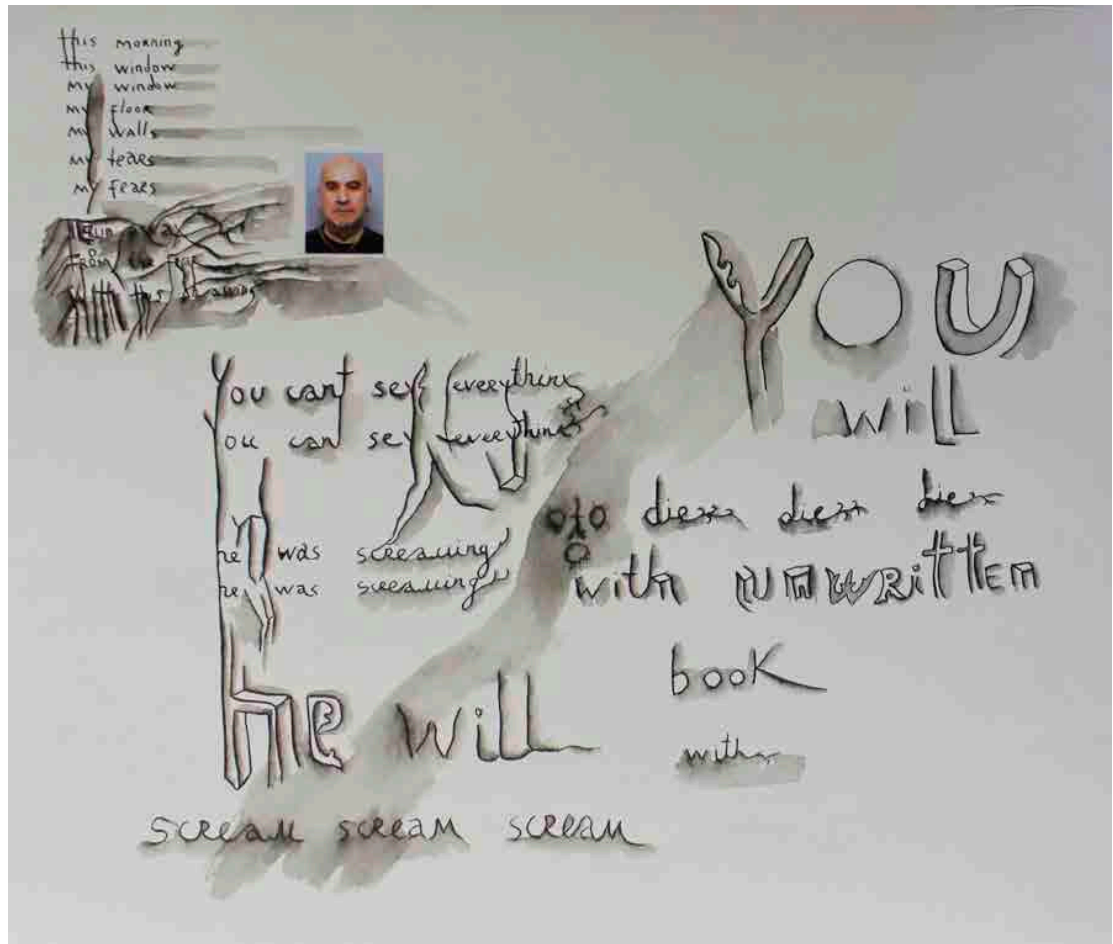 this morning
this window
my window
my floor
my walls
my tears
my fears
I run away
From the fear
with this drawing
You cant sey everything
You cant sey everything
he was screaming
he was screaming
he will
scream scream scream
YOU
will
diess diess diess
with UNWRITTEN
book
with